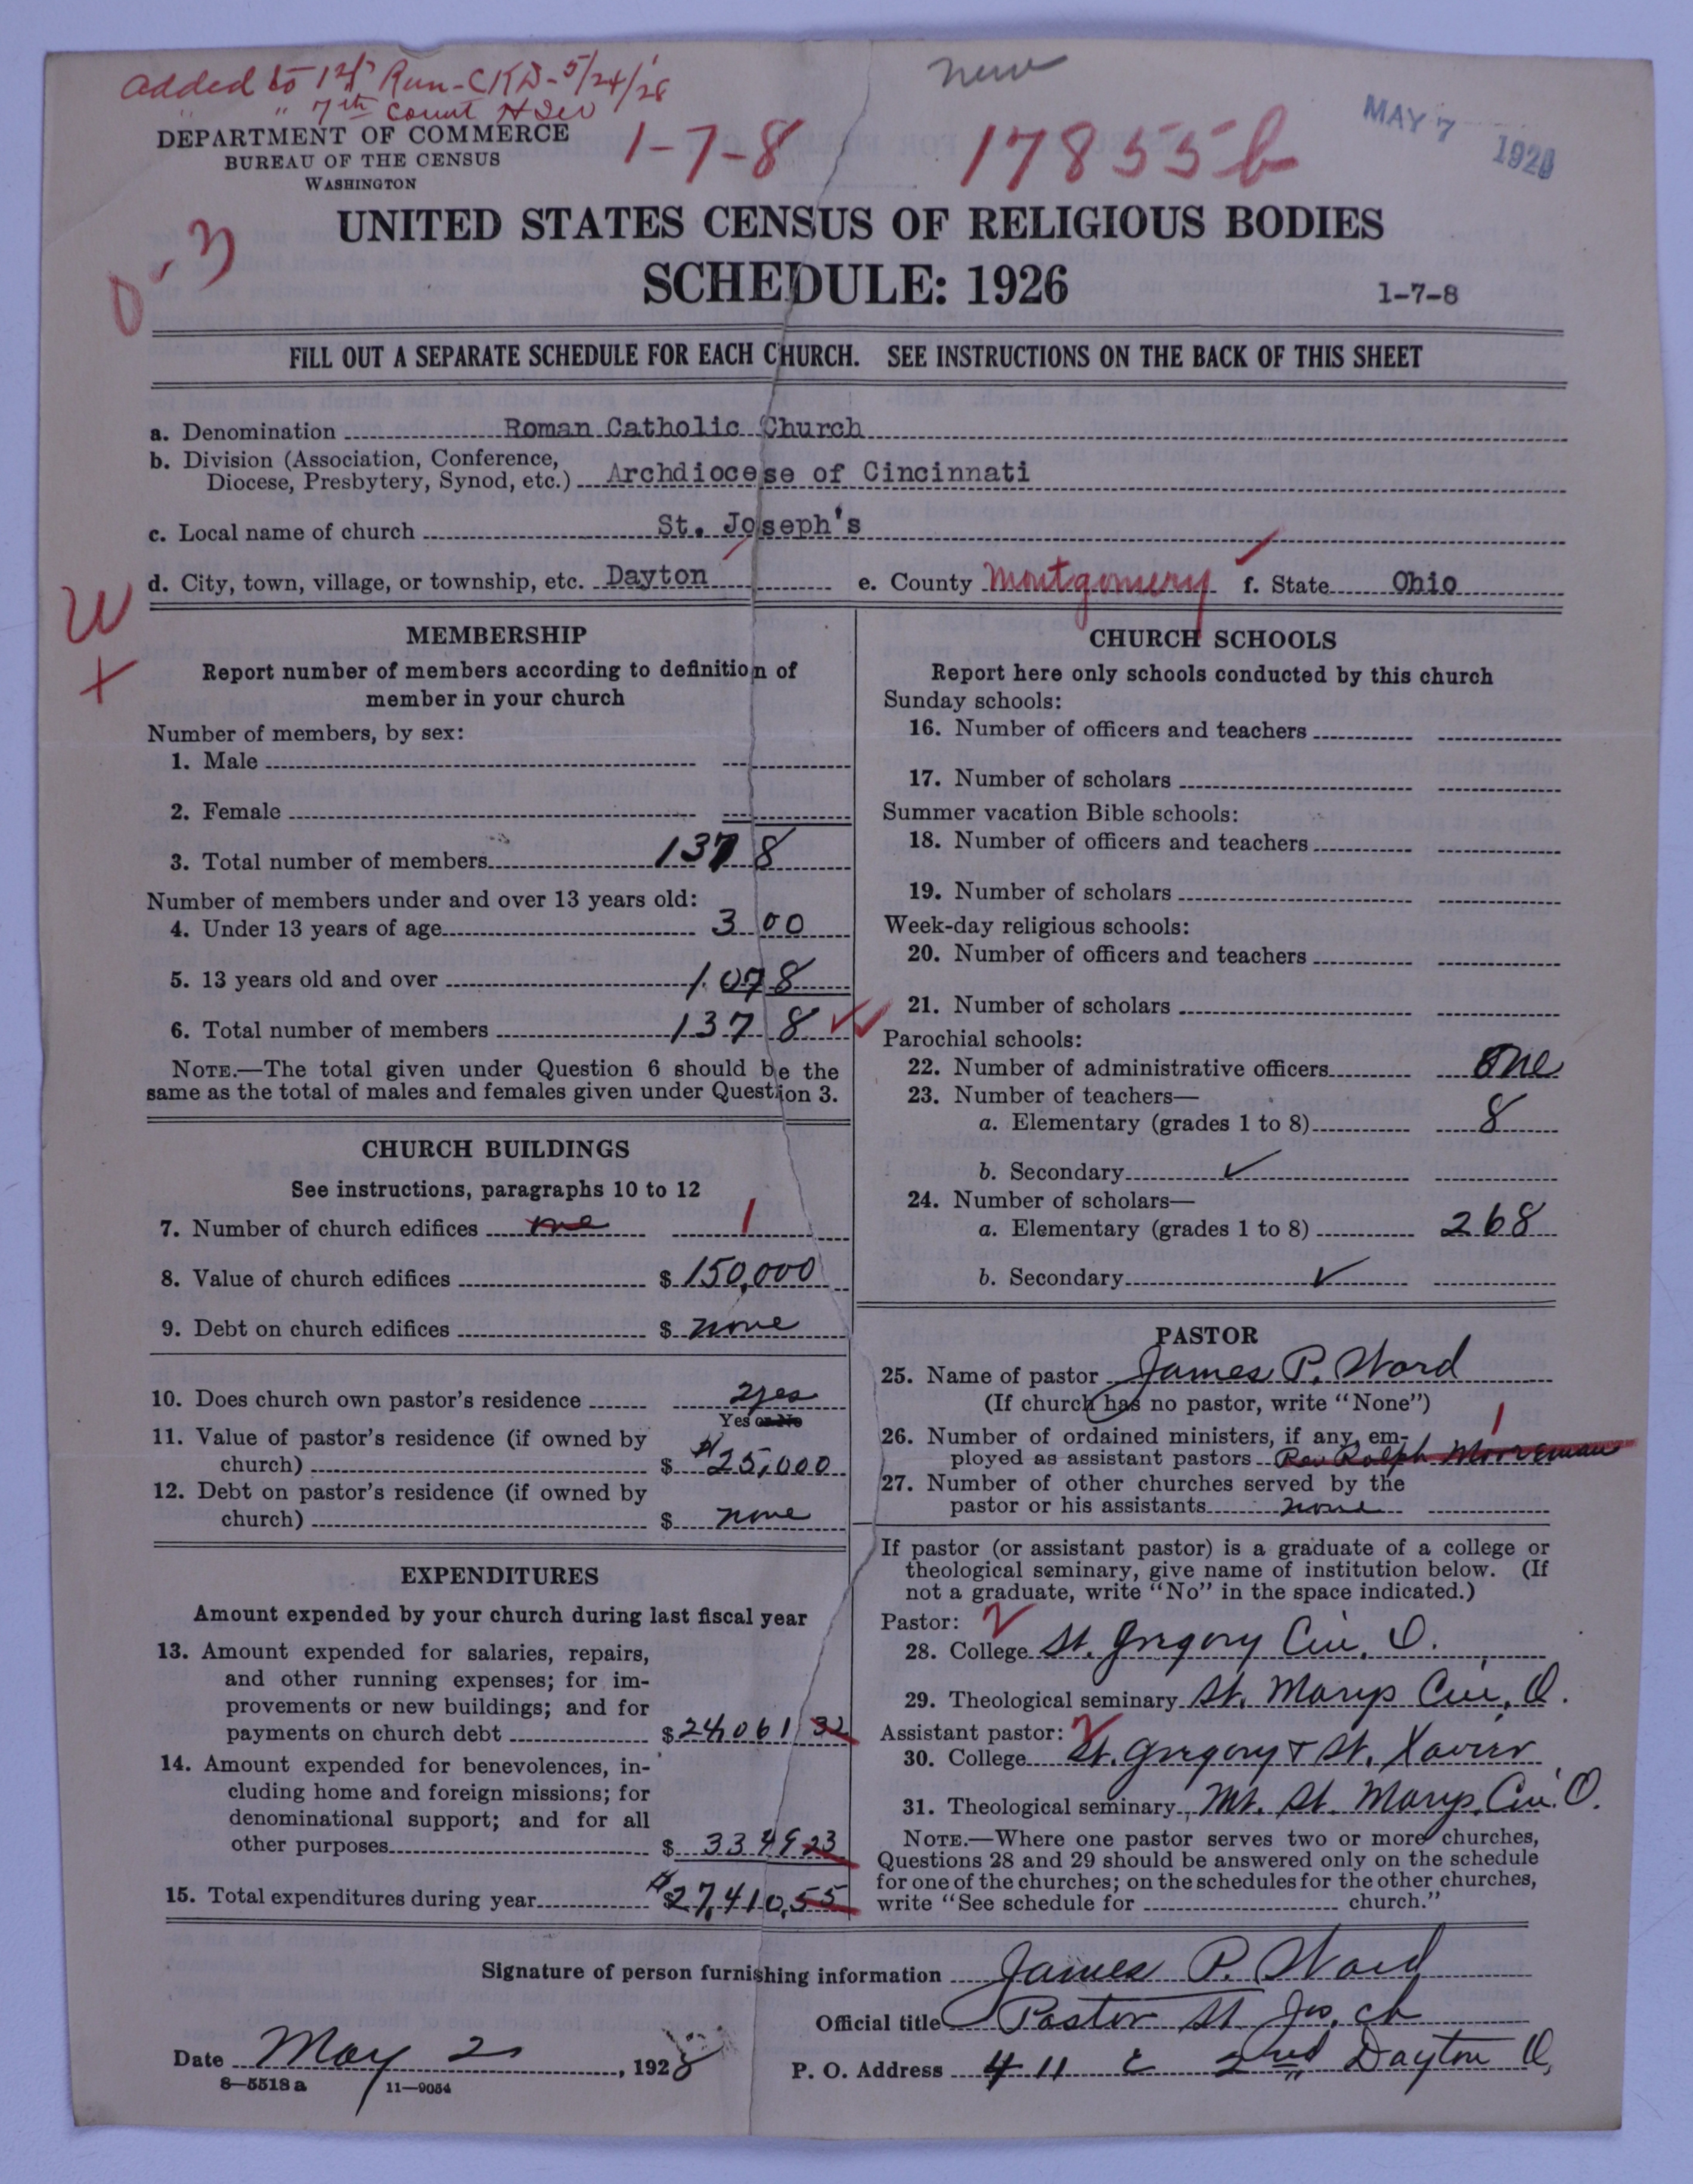 Added to 1st Run-CKD-5/24/28
" 7th Count
new
DEPARTMENT OF COMMERCE
BUREAU OF THE CENSUS
WASHINGTON
1-7-8
17855b
MAY 7 1928
UNITED STATES CENSUS OF RELIGIOUS BODIES
SCHEDULE: 1926
1-7-8
FILL OUT A SEPARATE SCHEDULE FOR EACH CHURCH. SEE INSTRUCTIONS ON THE BACK OF THIS SHEET
a. Denomination Roman Catholic Church
b. Division (Association, Conference,
Diocese, Presbytery, Synod, etc.) Archdiocese of Cincinnati
c. Local name of church St. Joseph's
d. City, town, village, or township, etc. Dayton e. County Montgomery f. State Ohio
W
+
MEMBERSHIP
Report number of members according to definition of
member in your church
Number of members, by sex:
1. Male
2. Female
3. Total number of members 1378
Number of members under and over 13 years old:
4. Under 13 years of age 300
5. 13 years old and over 1078
6. Total number of members 1378
NOTE.—The total given under Question 6 should be the
same as the total of males and females given under Question 3.
CHURCH BUILDINGS
See instructions, paragraphs 10 to 12
7. Number of church edifices one 1
8. Value of church edifices $ 150,000
9. Debt on church edifices $ none
10. Does church own pastor's residence yes
Yes or No
11. Value of pastor's residence (if owned by
church) $ $25,000
12. Debt on pastor's residence (if owned by
church) $ none
EXPENDITURES
Amount expended by your church during last fiscal year
13. Amount expended for salaries, repairs,
and other running expenses; for im-
provements or new buildings; and for
payments on church debt $ 24,061 32
14. Amount expended for benevolences, in-
cluding home and foreign missions; for
denominational support; and for all
other purposes $ 3349 23
15. Total expenditures during year $ $27,410,55
CHURCH SCHOOLS
Report here only schools conducted by this church
Sunday schools:
16. Number of officers and teachers
17. Number of scholars
Summer vacation Bible schools:
18. Number of officers and teachers
19. Number of scholars
Week-day religious schools:
20. Number of officers and teachers
21. Number of scholars
Parochial schools:
22. Number of administrative officers One
23. Number of teachers—
a. Elementary (grades 1 to 8) 8
b. Secondary ✓
24. Number of scholars—
a. Elementary (grades 1 to 8) 268
b. Secondary ✓
PASTOR
25. Name of pastor James P. Ward
(If church has no pastor, write "None")
26. Number of ordained ministers, if any, em- 1
ployed as assistant pastors Rev Ralph
27. Number of other churches served by the
pastor or his assistants none
If pastor (or assistant pastor) is a graduate of a college or
theological seminary, give name of institution below. (If
not a graduate, write "No" in the space indicated.)
Pastor: 2
28. College St. Gregory Cin. O.
29. Theological seminary St. Marys Cin. O.
Assistant pastor: 2
30. College St. Gregory & St. Xavier
31. Theological seminary Mt. St. Marys, Cin. O.
NOTE.—Where one pastor serves two or more churches,
Questions 28 and 29 should be answered only on the schedule
for one of the churches; on the schedules for the other churches,
write "See schedule for church."
Signature of person furnishing information James P. Ward
Official title Pastor St Jos. Ch
Date May 2, 1928
P. O. Address 411 E 2nd Dayton O,
8—5518a 11—9054